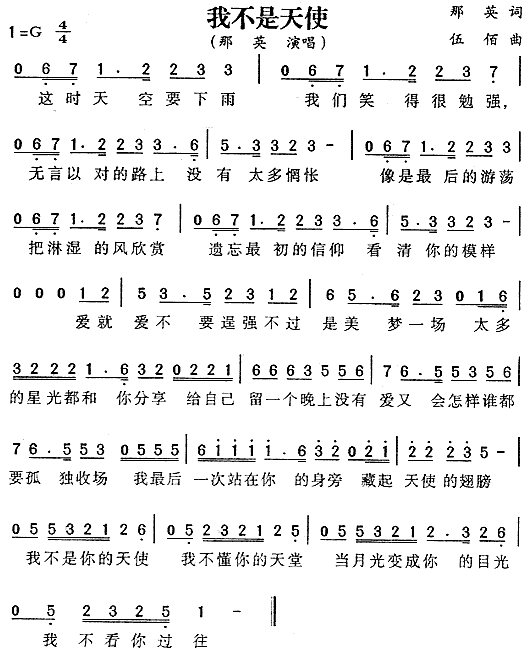 我不是天使
1=G 4/4
(那 英 演唱)
那 英 词
伍 佰 曲
0 6 7 1 · 2 2 3 3 | 0 6 7 1 · 2 2 3 7 |
这时天 空要下雨 我们笑 得很勉强,
0 6 7 1 · 2 2 3 3 · 6 | 5 · 3 3 2 3 - | 0 6 7 1 · 2 2 3 3
无言以 对的路上 没有 太多惆怅 像是最 后的游荡
0 6 7 1 · 2 2 3 7 | 0 6 7 1 · 2 2 3 3 · 6 | 5 · 3 3 2 3 -
把淋湿 的风欣赏 遗忘最 初的信仰 看清你的模样
0 0 0 1 2 | 5 3 · 5 2 3 1 2 | 6 5 · 6 2 3 0 1 6 |
爱就 爱不 要逞强不过 是美 梦一场 太多
3 2 2 2 1 · 6 3 2 0 2 2 1 | 6 6 6 3 5 5 6 | 7 6 · 5 5 3 5 6 |
的星光都和 你分享 给自己 留一个晚上没有 爱又 会怎样谁都
7 6 · 5 5 3 0 5 5 5 | 6 1 1 1 1 · 6 3 2 0 2 1 | 2 1 2 2 3 5 - |
要孤 独收场 我最后 一次站在你 的身旁 藏起 天使的翅膀
0 5 5 3 2 1 2 6 | 0 5 2 3 2 1 2 5 | 0 5 5 3 2 1 2 · 3 2 6 |
我不是你的天使 我不懂你的天堂 当月光变成你 的目光
0 5 2 3 2 5 1 - ‖
我 不看你过往